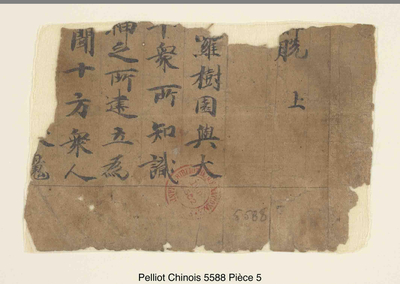 脫　上
羅樹園與大
千衆所知識
神之所建立爲
聞十方衆人
5588
Pelliot Chinois 5588 Pièce 5